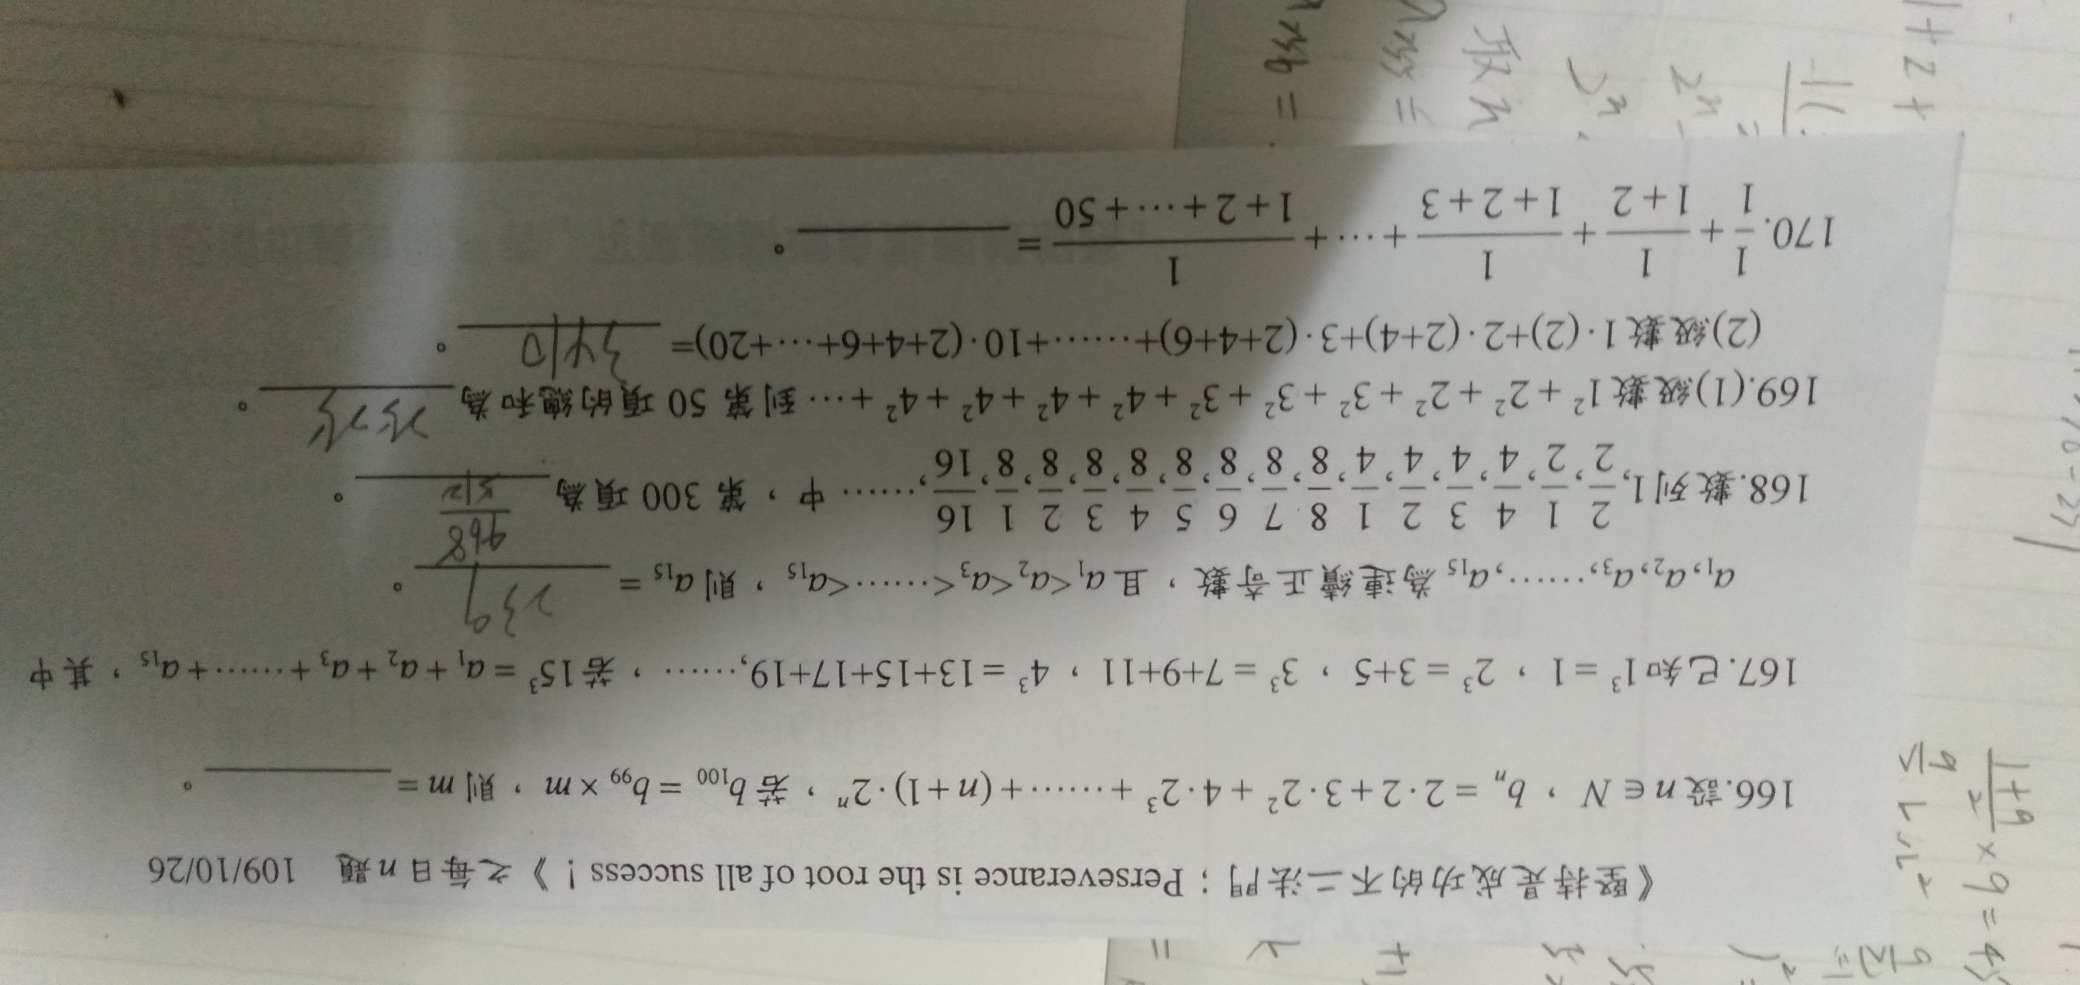 《堅持是成功的不二法門；Perseverance is the root of all success！》之每日n題 109/10/26
166.設 n∈N，bₙ = 2·2+3·2²+4·2³+⋯⋯+(n+1)·2ⁿ，若 b₁₀₀ = b₉₉×m，則 m = ______。
167.已知 1³=1，2³=3+5，3³=7+9+11，4³=13+15+17+19,⋯⋯，若 15³=a₁+a₂+a₃+⋯⋯+a₁₅，其中
a₁,a₂,a₃,⋯⋯,a₁₅ 為連續正奇數，且 a₁<a₂<a₃<⋯⋯<a₁₅，則 a₁₅ = 239。
168.數列 1, 2/2, 1/2, 4/4, 3/4, 2/4, 1/4, 8/8, 7/8, 6/8, 5/8, 4/8, 3/8, 2/8, 1/8, 16/16,⋯⋯ 中，第 300 項為 468/512。
169.(1)級數 1²+2²+2²+3²+3²+3²+4²+4²+4²+4²+⋯ 到第 50 項的總和為______。
(2)級數 1·(2)+2·(2+4)+3·(2+4+6)+⋯⋯+10·(2+4+6+⋯+20)= 3410。
170. 1/1 + 1/(1+2) + 1/(1+2+3) + ⋯ + 1/(1+2+⋯+50) = ______。
1+9/2 × 9 = 45
取n
1+2+